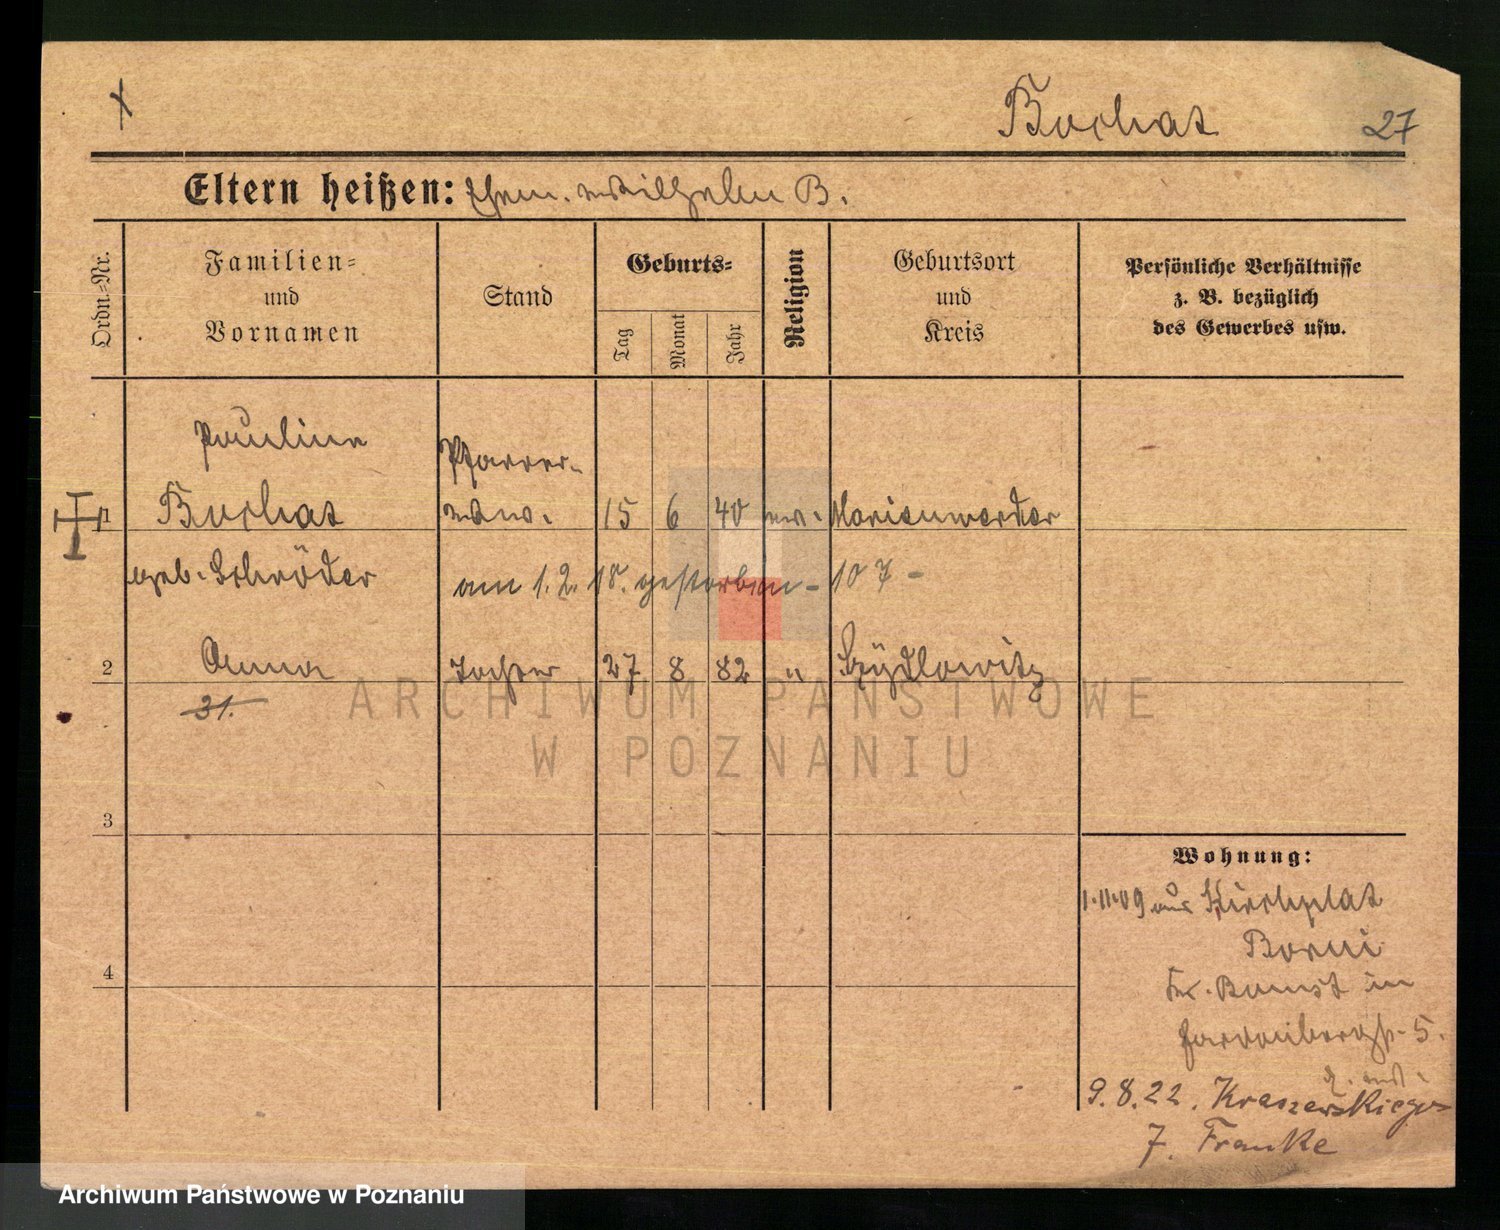 Bochat 27
Eltern heißen: Ehem. Wilhelm B.
Ordn.-Nr.
Familien-
und
Vornamen
Stand
Geburts-
Tag
Monat
Jahr
Religion
Geburtsort
und
Kreis
Persönliche Verhältnisse
z. B. bezüglich
des Gewerbes usw.
Pauline
Pfarrer-
1 Bochat Wwe. 15 6 40 ev. Marienwerder
geb. Schröder am 1.2.18. gestorben - 107 -
2 Anna Tochter 27 8 82 " Szydlowitz
31.
3
4
Wohnung:
1.11.09 aus Kirchplatz
Borui
Kr. Bomst in
Hardenbergstr. 5.
9.8.22. Kraszewskiego
7. Franke
ARCHIWUM PAŃSTWOWE
W POZNANIU
Archiwum Państwowe w Poznaniu